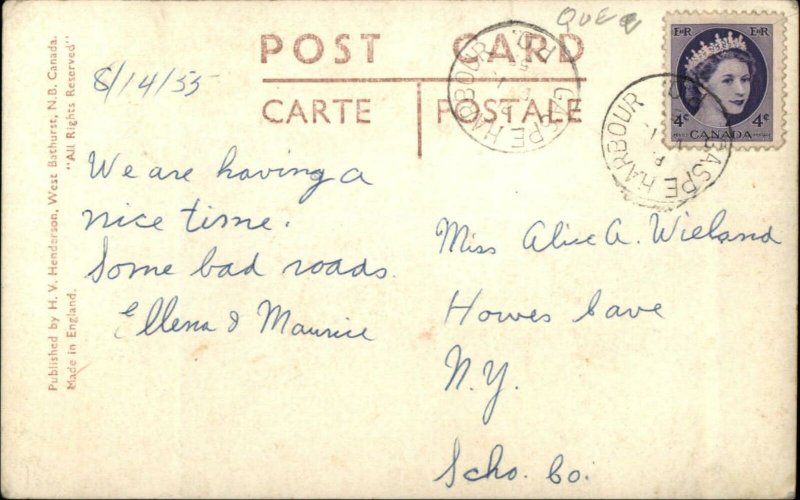 QUE
POST CARD
CARTE POSTALE
GASPE HARBOUR
P.Q.
E II R E II R
4¢ 4¢
CANADA
GASPE HARBOUR
8/14/55
We are having a
nice time.
Some bad roads.
Ellena & Maurice
Miss Alice A. Wieland
Howes Cave
N.Y.
Scho. Co.
Published by H. V. Henderson, West Bathurst, N.B. Canada.
Made in England.
"All Rights Reserved"